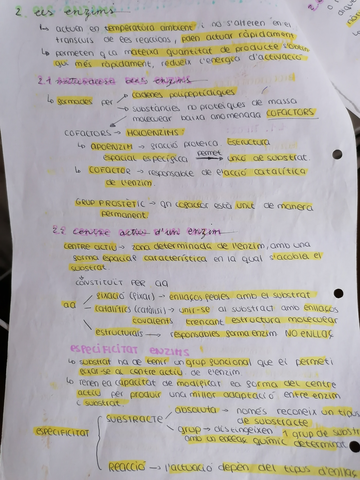 2. ELS ENZIMS
↳ actuen en temperatura ambient i no s'alteren en el
transcurs de les reaccions, poden actuar ràpidament
↳ permeten q la mateixa quantitat de producte s'obtengui
més ràpidament, redueix l'energia d'activació
2.1 DELS ENZIMS
↳ formades per → cadenes polipeptídiques
→ substàncies no proteiques de massa
molecular baixa anomenada COFACTORS
COFACTORS → HOLOENZIMS:
↳ APOENZIM → fracció proteica. Estructura
espacial específica permet → unió de substrat.
↳ COFACTOR → responsable de l'acció catalítica
de l'enzim
GRUP PROSTÈTIC → qn cofactor està unit de manera
permanent
2.2 CENTRE ACTIU D'UN ENZIM
CENTRE ACTIU → zona determinada de l'enzim, amb una
forma espacial característica en la qual s'acobla el
substrat
CONSTITUÏT PER AA
AA fixació (fixar) → enllaços febles amb el substrat
catalítics (catàlisi) → unir-se al substract amb enllaços
covalents trencant estructura molecular
estructurals → responsables forma enzim NO ENLLAÇ
ESPECIFICITAT ENZIMS
↳ substrat ha de tenir un grup funcional que el permeti
fixar-se al centre actiu de l'enzim
↳ tenen la capacitat de modificar la forma del centre
actiu per produir una millor adaptació entre enzim
i substrat
ESPECIFICITAT SUBSTRACTE absoluta → només reconeix un tipus
de substracte
grup → distingeixen 1 grup de substr
amb un enllaç químic determinat
REACCIÓ → l'actuació depèn del tipus d'enllaç